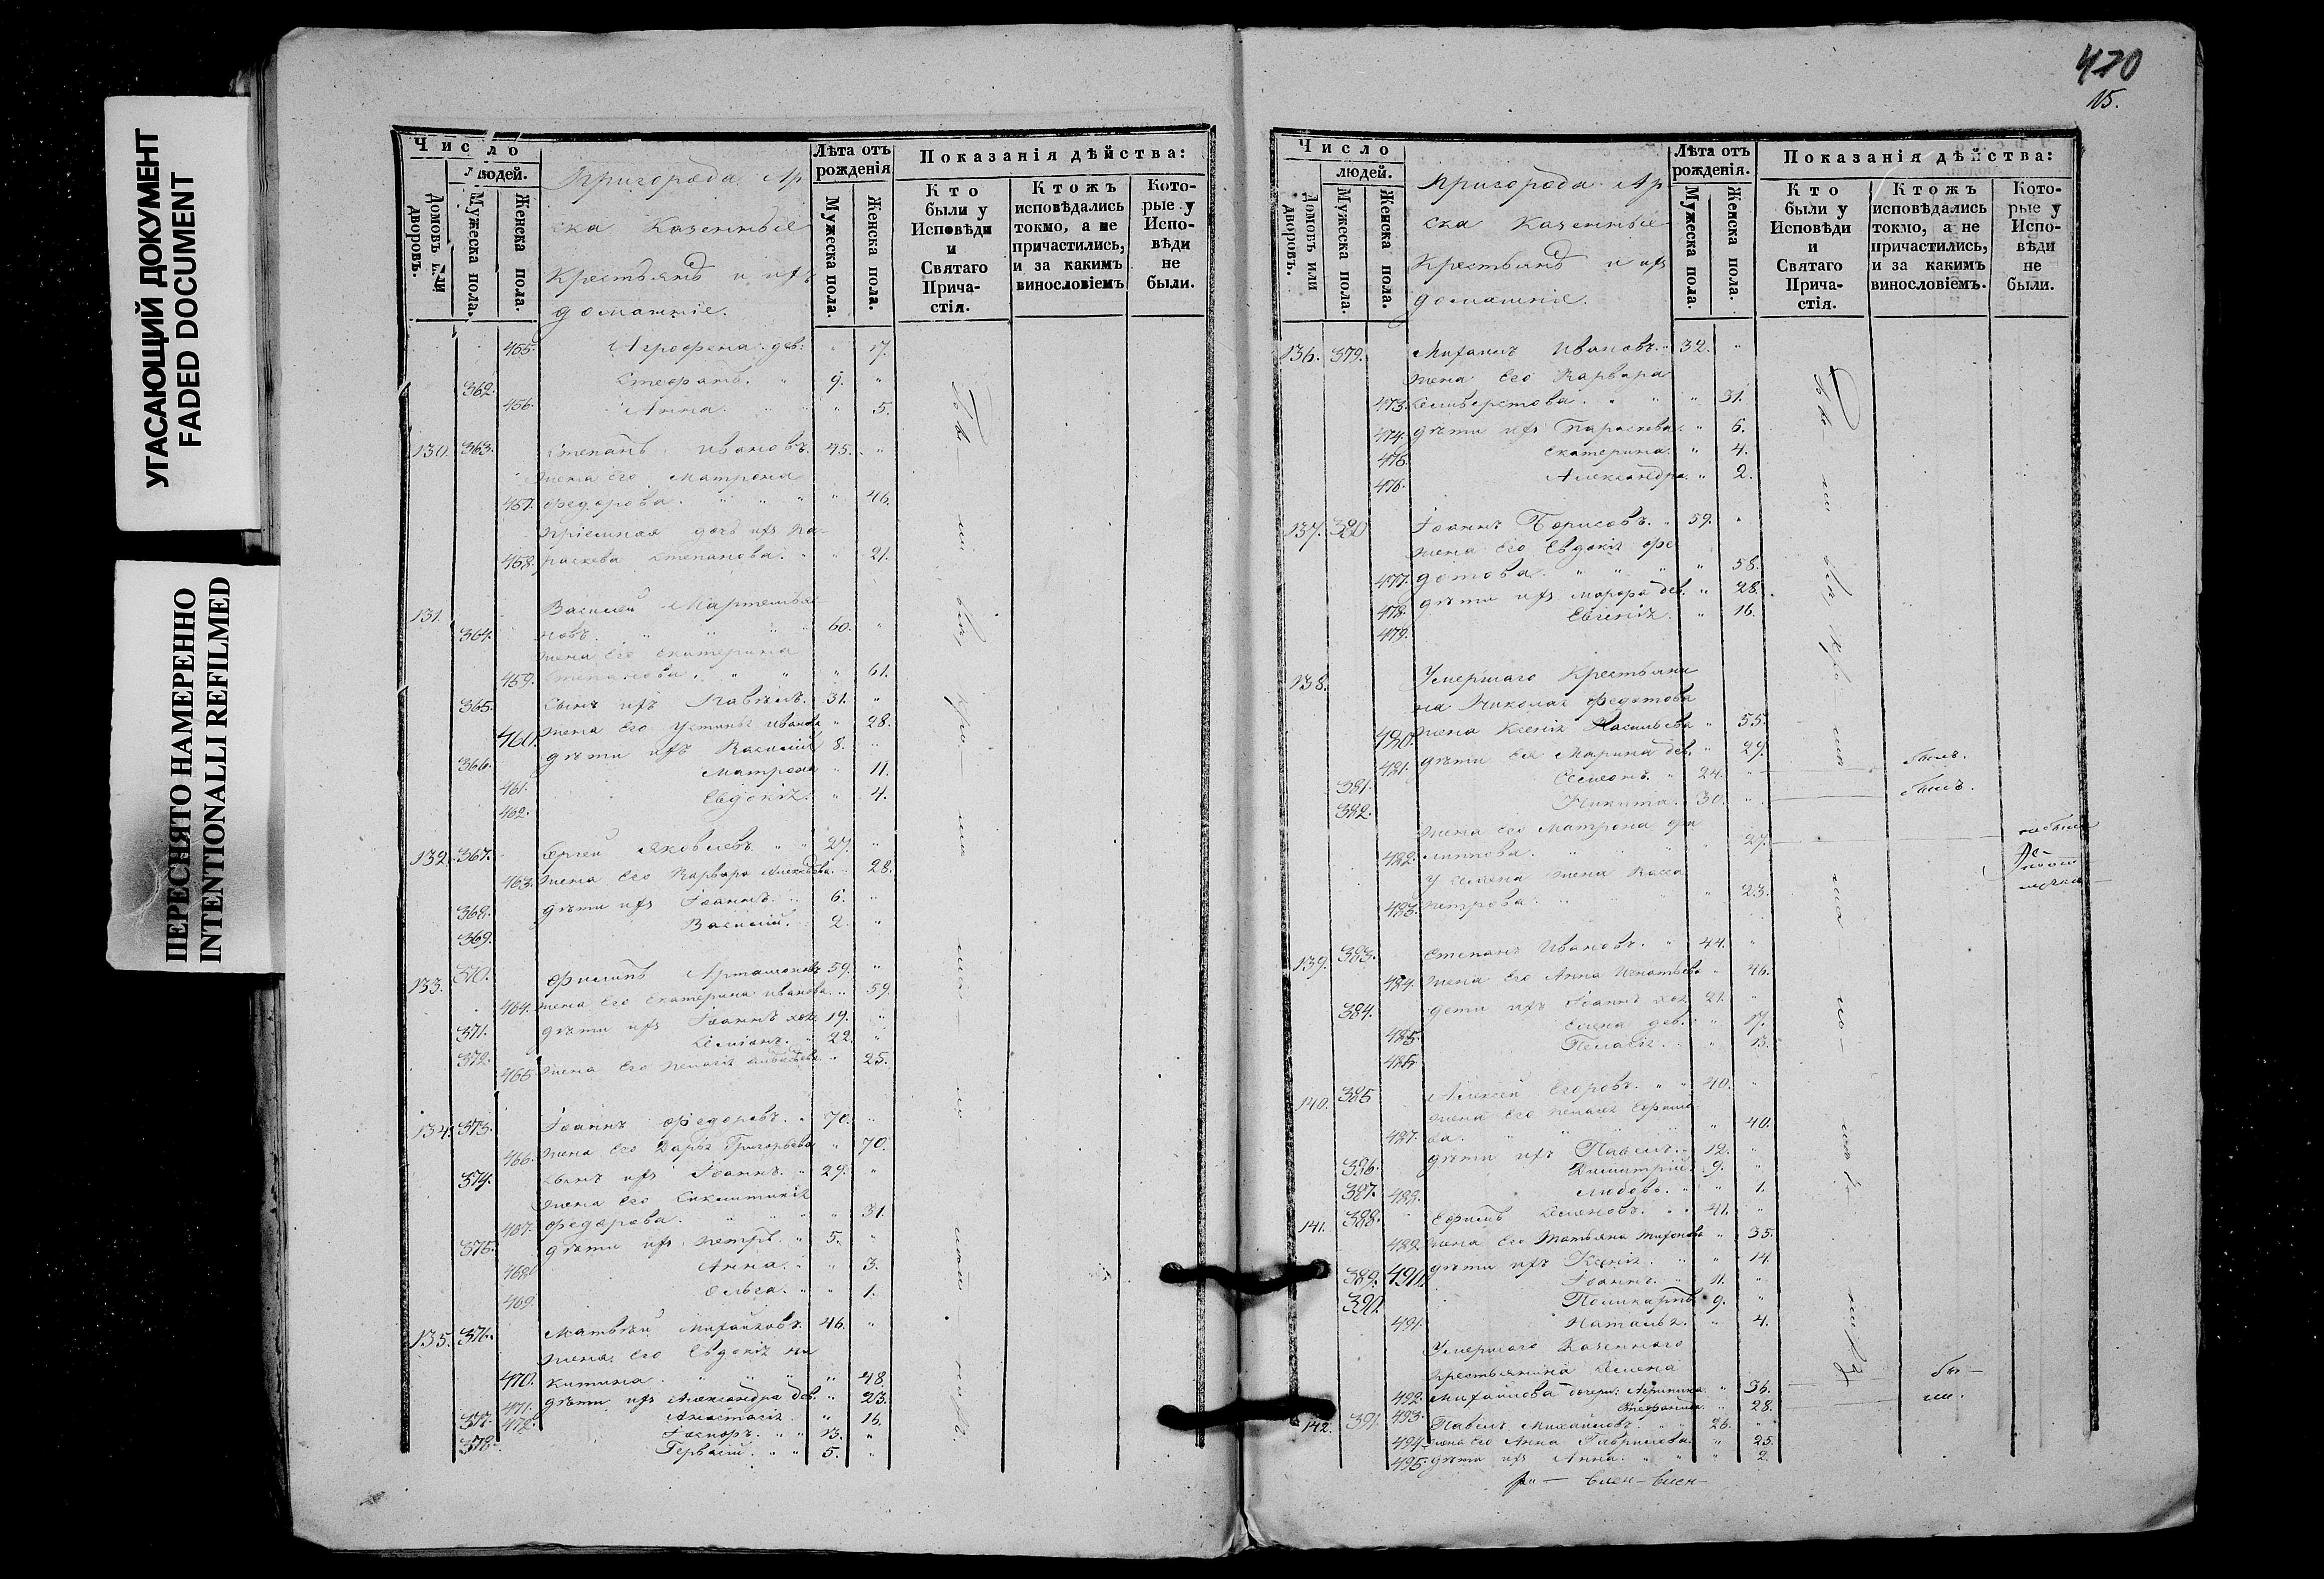 УГАСАЮЩИЙ ДОКУМЕНТ
FADED DOCUMENT
ПЕРЕСНЯТО НАМЕРЕННО
INTENTIONALLI REFILMED
Число
людей.
Домовъ или дворовъ.
Мужеска пола.
Женска пола.
Пригорода Ар
ска Казенные
Крестьянъ и ихъ
домашніе.
Лѣта отъ рожденія
Мужеска пола.
Женска пола.
Показанія дѣйства:
Кто были у Исповѣди и Святаго Прича-стія.
Ктожъ исповѣдались токмо, а не причастились, и за какимъ винословіемъ
Кото-рые у Испо-вѣди не были.
455. Агрофена дев: " 17.
362. Стефанъ. " 9. "
456. Анна. " " 5.
130. 363. Степанъ Ивановъ. 45. "
жена его Матрона
457. Федорова. " " " " 46.
Пріемная дочь ихъ Па-
458. раскева Степанова. " " 21.
131. Василей Мартемья
364. новъ. " " " 60. "
жена его Екатерина
459. Степанова. " " " 61.
365. Сынъ ихъ Павелъ. 31. "
460. жена его Устинья Иванова " 28.
366. дѣти ихъ Василій 8. "
461. Матрона " 11.
462. Евдокія. " 4.
132. 367. Сергей Яковлевъ. " " 27. "
463. жена его Варвара Алексѣева. " 28.
368. дѣти ихъ Іоаннъ. " 6. "
369. Василій. 2. "
133. 370. Филипъ Артамоновъ 59. "
464. жена его Екатерина Иванова. " 59.
371. дѣти ихъ Іоаннъ хол 19. "
372. Симіонъ. " 22. "
465. жена его Пелагія " 25.
134. 373. Іоаннъ Федоровъ. " 70. "
466. жена его Дарья Григорьева " 70.
374. сынъ ихъ Іоаннъ. " 29. "
жена его Синклитикія
467. Федорова. " " " 31.
375. дѣти ихъ Петръ. " 5. "
468. Анна. " " 3.
469. Ольга. " " 1.
135. 376. Матвѣй Михайловъ. 46. "
жена его Евдокія Ни
470. китина. " " " " 48.
471. дѣти ихъ Александра дев. " 23.
472. Анастасія. " 16.
377. " " 13. "
378. Гервасій. " " 5. "
470
15.
Число
людей.
Домовъ или дворовъ.
Мужеска пола.
Женска пола.
Пригорода Ар
ска Казенные
Крестьянъ и ихъ
домашніе.
Лѣта отъ рожденія.
Мужеска пола.
Женска пола.
Показанія дѣйства:
Кто были у Исповѣди и Святаго Прича-стія.
Ктожъ исповѣдались токмо, а не причастились, и за какимъ винословіемъ.
Кото-рые у Испо-вѣди не были.
136. 379. Михаилъ Ивановъ. " 32. "
жена его Варвара
473. Селиверстова. " " " 31.
474. дѣти ихъ Параскева. " 6.
475. Екатерина. " 4.
476. Александра. " 2.
137. 380 Іоаннъ Борисовъ. " 59. "
жена его Евдокія Фе
477. дотова. " " " " 58.
478. дѣти ихъ дев. " 28.
479. Евгенія. " 16.
138. Умершаго Крестьяни
на Николая Федотова
480. жена Ксенія Васильева " 55.
481. дѣти ея Марина дев. " 29.
381. Семеонъ. " 24. " былъ.
382. Никита. 30. " былъ.
жена его Матрона Фи
482. липпова. " " " 27.
У Семена жена Васса
483. Петрова. " " 23.
139. 383. Степанъ Ивановъ. " 44. "
484. жена его Анна Игнатьева " 46.
384. дети ихъ Іоаннъ хол 21. "
485. Елена дев. " 17.
486. Пелагія. " " 13.
140. 385 Алексей Егоровъ. " " 40. "
жена его Пелагія
487. ва. " " " " 40.
386. дѣти ихъ Павелъ. " 12. "
387. Димитрій. 9. "
488. Любовь. " " 1.
141. 388. Ефимъ Семеновъ. " " 41. "
489. жена его Татьяна Тихонова " 35.
490. дѣти ихъ Ксенія. " " 14.
389. Іоаннъ. " 11. "
390. Поликарпъ 9. "
491. Наталья. " " 4.
Умершаго Казеннаго
крестьянина Семена
492. Михайлова дочери: Агрипина. " 36. бы-
493. Стефанида. " 28. ли.
142. 391. Павелъ Михайловъ. " 26. "
494. жена его Анна Гаврилова. " 25.
495. дѣти ихъ Анна. " " " 2.